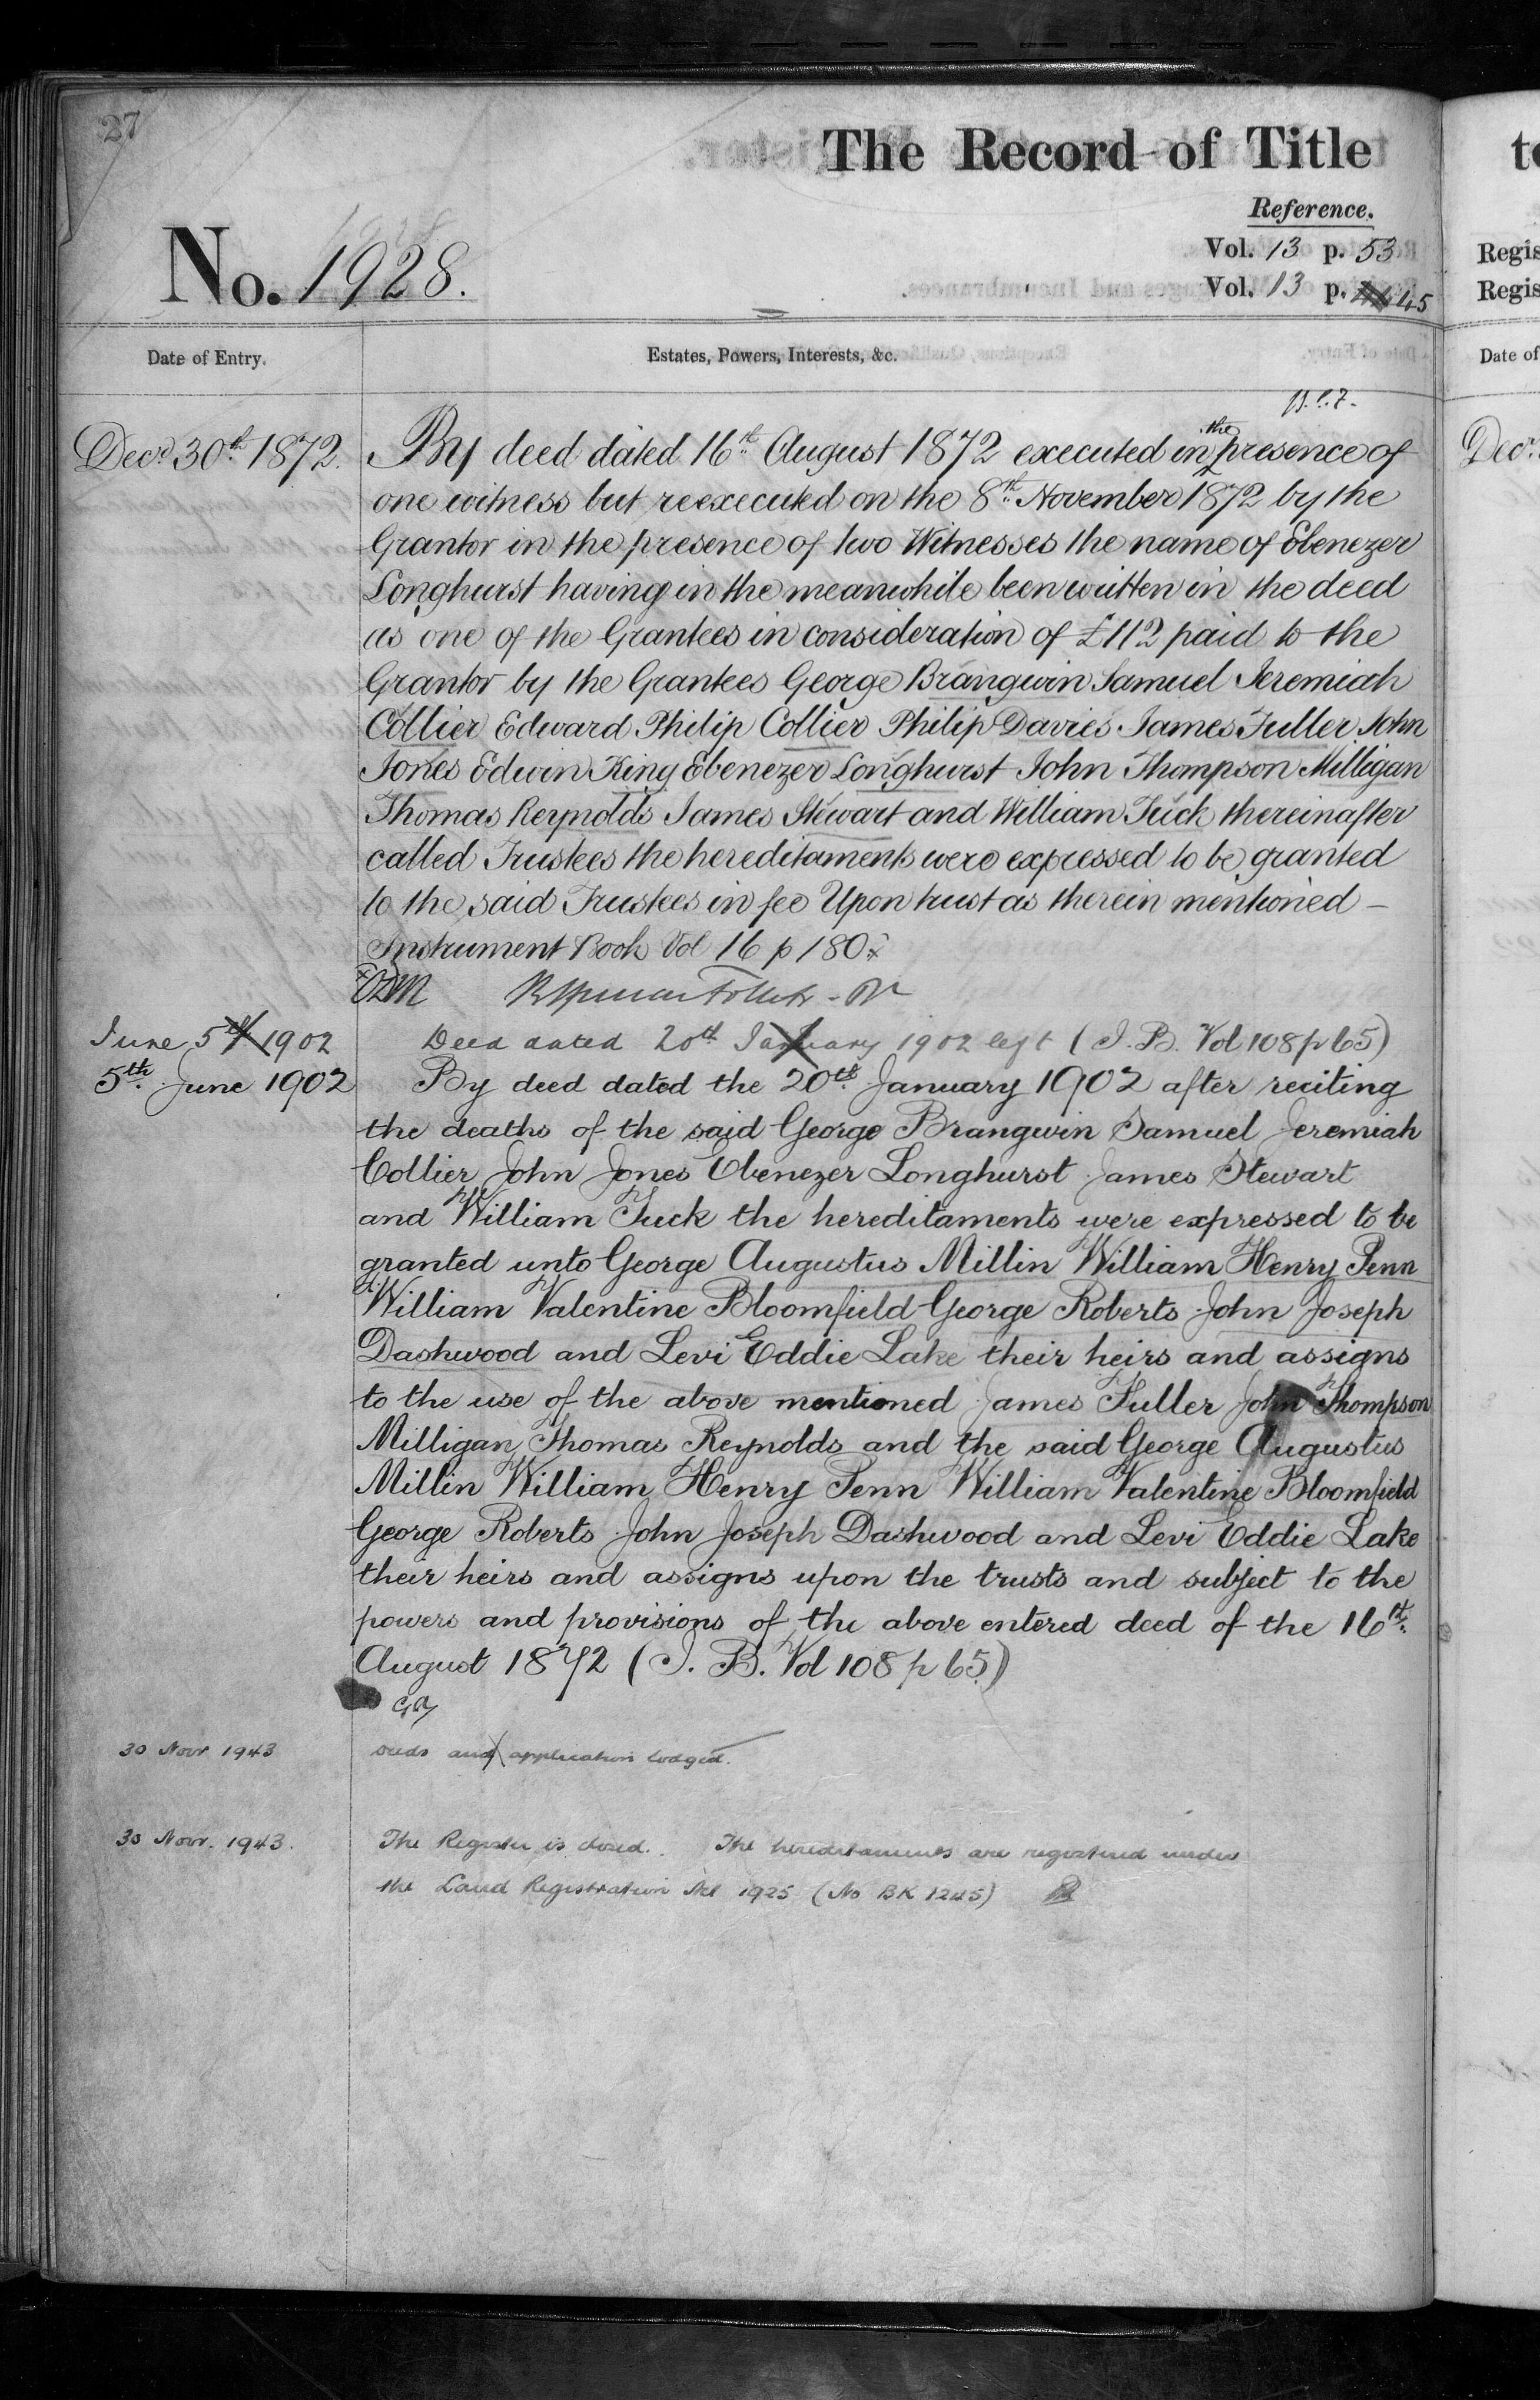 27
The Record of Title
Reference.
No. 1928.
Vol. 13 p. 53
Vol. 13 p. 45
Date of Entry.
Estates, Powers, Interests, &c.
Decr. 30th 1872.
By deed dated 16th August 1872 executed in the presence of
one witness but reexecuted on the 8th November 1872 by the
Grantor in the presence of two Witnesses the name of Ebenezer
Longhurst having in the meanwhile been written in the deed
as one of the Grantees in consideration of £112 paid to the
Grantor by the Grantees George Brangwin Samuel Jeremiah
Collier Edward Philip Collier Philip Davies James Fuller John
Jones Edwin King Ebenezer Longhurst John Thompson Milligan
Thomas Reynolds James Stewart and William Tuck thereinafter
called Trustees the hereditaments were expressed to be granted
to the said Trustees in fee Upon trust as therein mentioned —
Instrument Book Vol 16 p 180
June 5th 1902
Deed dated 20th January 1902 left (I. B. Vol 108 p 65)
5th June 1902
By deed dated the 20th January 1902 after reciting
the deaths of the said George Brangwin Samuel Jeremiah
Collier John Jones Ebenezer Longhurst James Stewart
and William Tuck the hereditaments were expressed to be
granted unto George Augustus Millin William Henry Penn
William Valentine Bloomfield George Roberts John Joseph
Dashwood and Levi Eddie Lake their heirs and assigns
to the use of the above mentioned James Fuller John Thompson
Milligan Thomas Reynolds and the said George Augustus
Millin William Henry Penn William Valentine Bloomfield
George Roberts John Joseph Dashwood and Levi Eddie Lake
their heirs and assigns upon the trusts and subject to the
powers and provisions of the above entered deed of the 16th
August 1872 (I. B. Vol 108 p 65)
30 Novr 1943
and application lodged.
30 Novr. 1943.
The Register is closed. The hereditaments are registered under
the Land Registration Act 1925 (No BK 1245)
to
Regis
Regis
Date of
Decr.